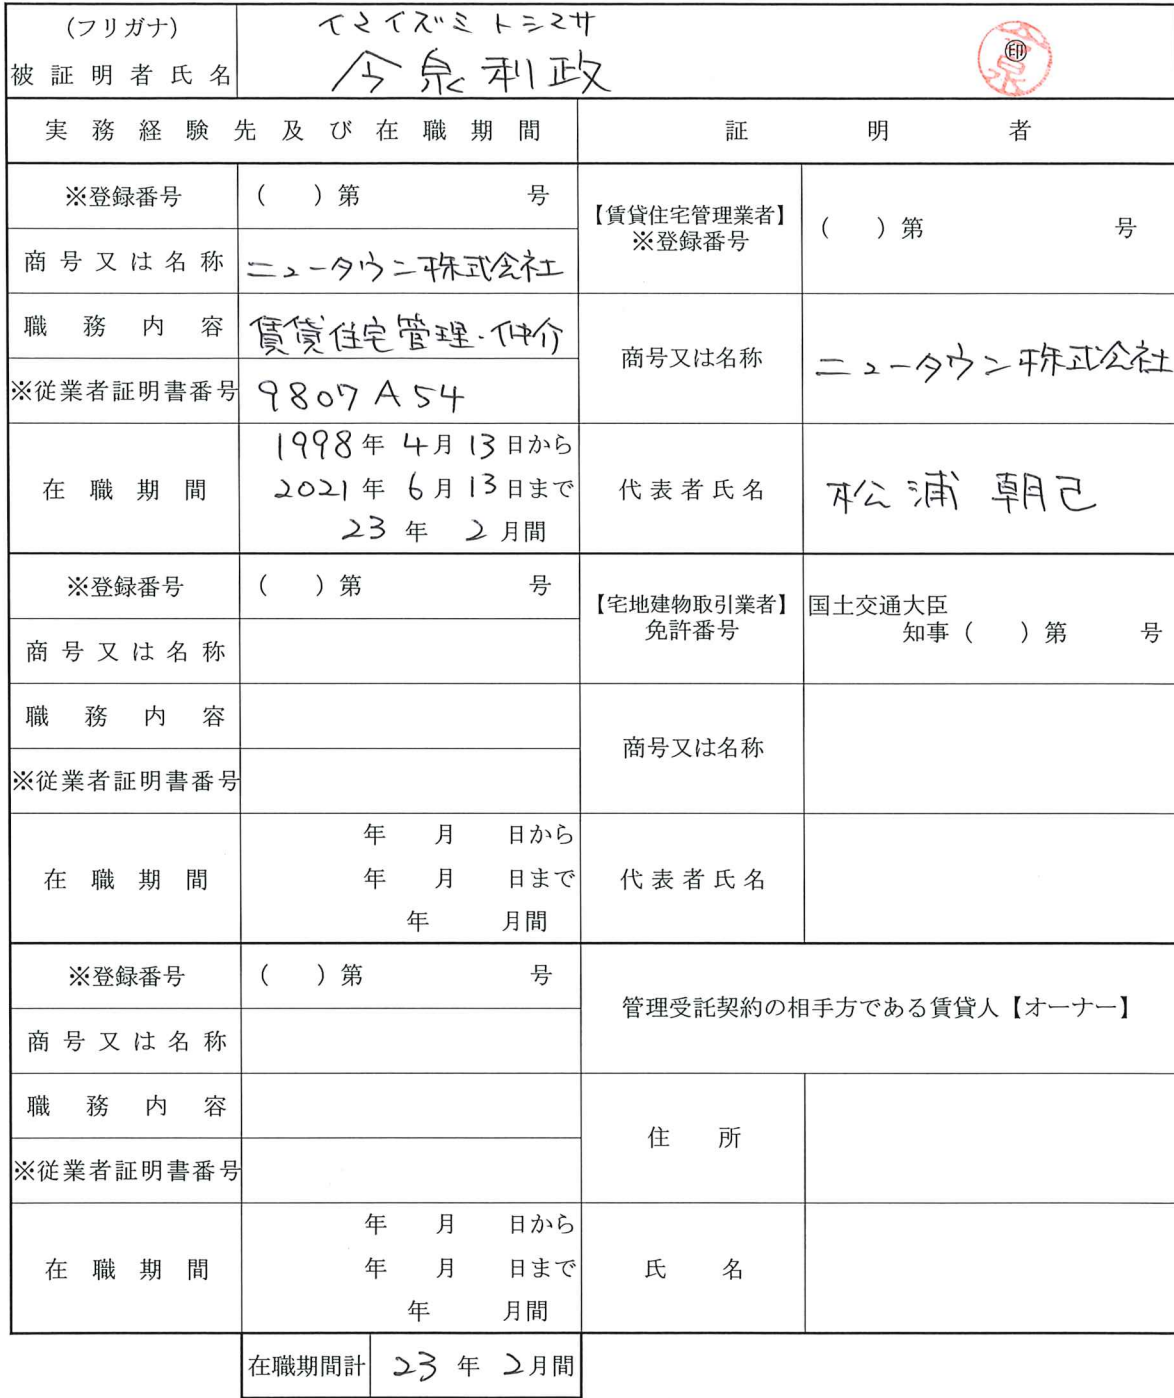 (フリガナ) イマイズミトシマサ
被証明者氏名 今泉利政 ㊞
実務経験先及び在職期間 証明者
※登録番号 ( )第 号 【賃貸住宅管理業者】※登録番号 ( )第 号
商号又は名称 ニュータウン株式会社
職務内容 賃貸住宅管理・仲介 商号又は名称 ニュータウン株式会社
※従業者証明書番号 9807A54
在職期間 1998年4月13日から
2021年6月13日まで 代表者氏名 松浦朝己
23年2月間
※登録番号 ( )第 号 【宅地建物取引業者】免許番号 国土交通大臣
知事( )第 号
商号又は名称
職務内容 商号又は名称
※従業者証明書番号
在職期間 年 月 日から
年 月 日まで 代表者氏名
年 月間
※登録番号 ( )第 号 管理受託契約の相手方である賃貸人【オーナー】
商号又は名称
職務内容 住所
※従業者証明書番号
在職期間 年 月 日から
年 月 日まで 氏名
年 月間
在職期間計 23年2月間